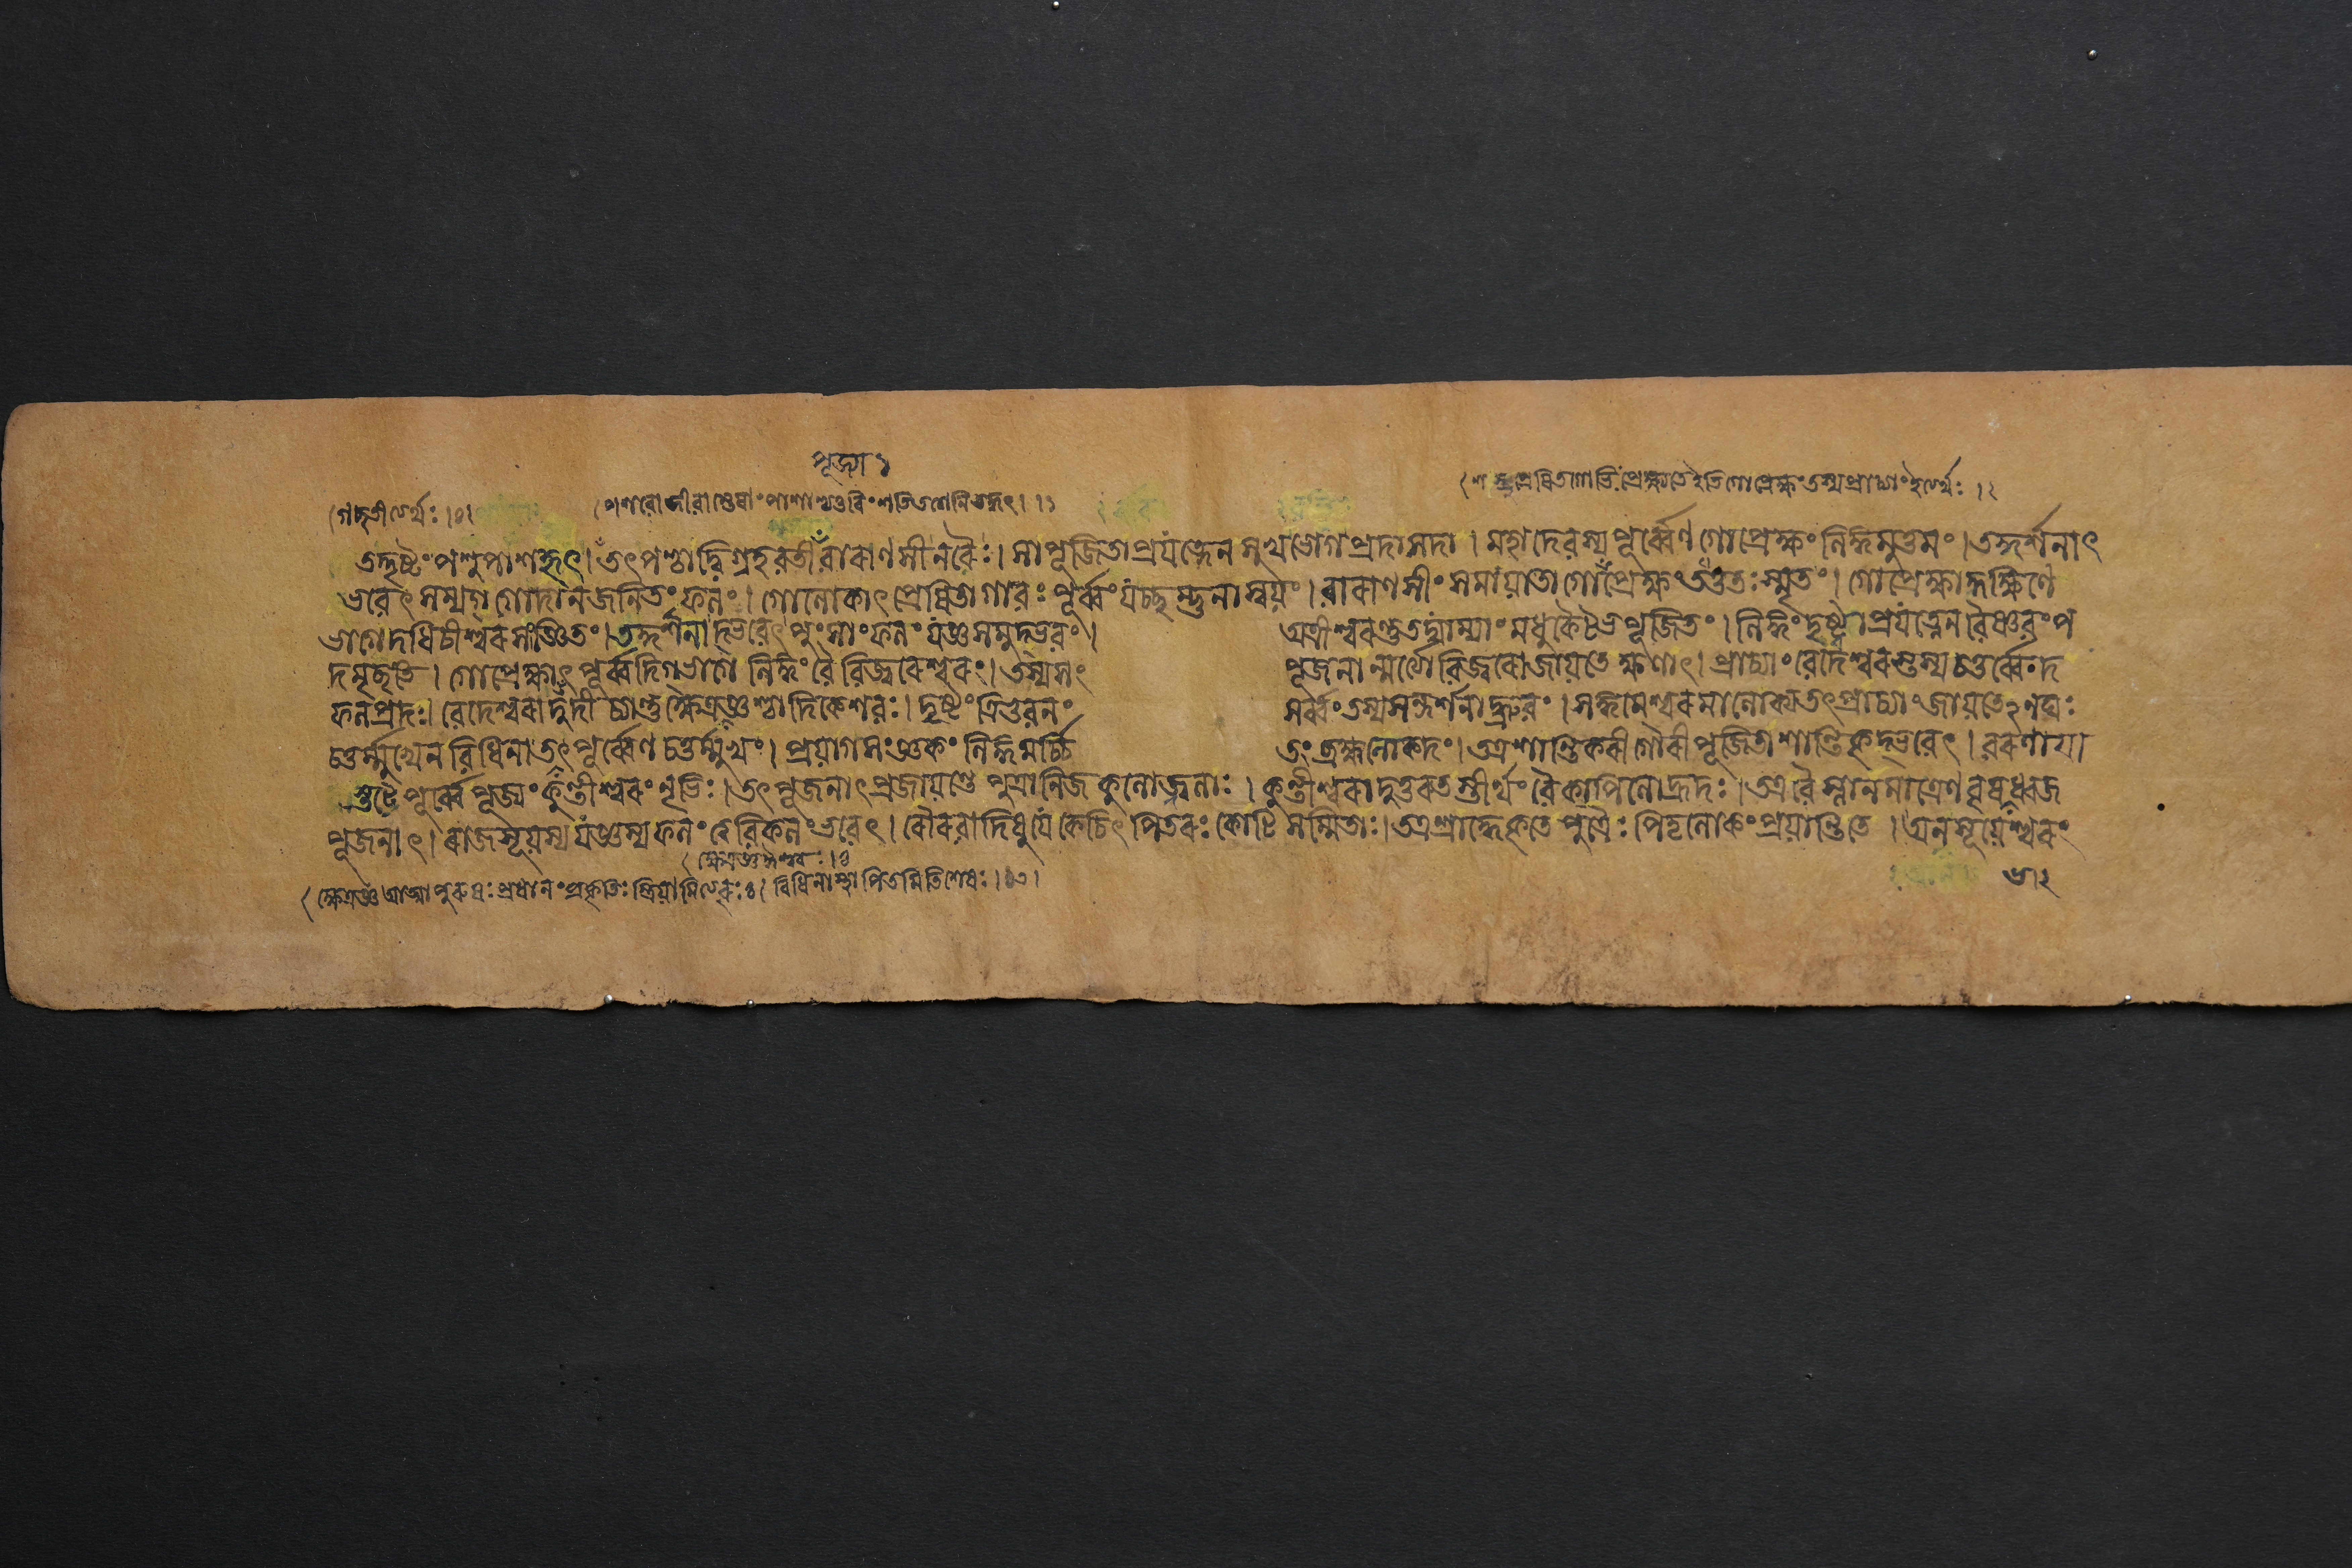 পূজ্যা ১
গচ্ছতীত্যর্থঃ ।
শম্ভুপ্রেষিতগোভিঃ প্রেক্ষ্যতে ইতি গোপ্রেক্ষং তস্যপ্রাচ্যাং ইত্যর্থঃ ।২
তদ্দৃষ্টং পশুপাশহৃৎ । তৎপশ্চাদ্বিগ্রহবতী বারাণসী নরৈঃ । সা পূজিতা প্রযত্নেন সুখভোগপ্রদা সদা । মহাদেবস্য পূর্ব্বেণ গোপ্রেক্ষং লিঙ্গমুত্তমং । তদ্দর্শনাৎ
ভবেৎ সম্যগ্ গোদানজনিতং ফলং । গোলোকাৎ প্রেষিতা গাবঃ পূর্ব্বং যচ্ছম্ভুনা স্বয়ং । বারাণসীং সমায়াতা গোপ্রেক্ষং তত্ততঃ স্মৃতং । গোপ্রেক্ষাদ্দক্ষিণে
ভাগে দধিচীশ্বরসংজ্ঞিতং । তদ্দর্শনাদ্ভবেৎ পুংসাং ফলং যজ্ঞসমুদ্ভবং । অত্রীশ্বরন্তু তৎপ্রাচ্যাং মধুকৈটভপূজিতং । লিঙ্গং দৃষ্ট্বা প্রযত্নেন বৈষ্ণবং প
দমৃচ্ছতি । গোপ্রেক্ষাৎ পূর্ব্বদিগ্ভাগে লিঙ্গং বৈ বিজ্বরেশ্বরং । তস্য সং পূজনান্মর্ত্যো বিজ্বরো জায়তে ক্ষণাৎ । প্রাচ্যাং বেদেশ্বরস্তস্য চতুর্ব্বেদ
ফলপ্রদঃ । বেদেশ্বরাদুদীচ্যান্তু ক্ষেত্রজ্ঞশ্চাদিকেশবঃ । দৃষ্টং ত্রিভুবনং সর্ব্বং তস্য সন্দর্শনাদ্ধ্রুবং । সঙ্গমেশ্বরমালোক্য তৎপ্রাচ্যাং জায়তেঽনঘঃ
চতুর্ম্মুখেন বিধিনা তৎপূর্ব্বেণ চতুর্ম্মুখং । প্রয়াগসংজ্ঞকং লিঙ্গমর্চ্চি তং ব্রহ্মলোকদং । তত্র শান্তিকরী গৌরী পূজিতা শান্তিকৃদ্ভবেৎ । বরণায়া
স্তটে পূর্ব্বে পূজ্যং কুন্তীশ্বরং নৃভিঃ । তৎপূজনাৎ প্রজায়ন্তে পুত্রা নিজকুলোজ্জ্বলাঃ । কুন্তীশ্বরাদুত্তরতস্তীর্থং বৈ কাপিলো হ্রদঃ । তত্র বৈ স্নানমাত্রেণ বৃষধ্বজ
পূজনাৎ । রাজসূয়স্য যজ্ঞস্য ফলং ত্ববিকলং ভবেৎ । রৌরবাদিষু যে কেচিৎ পিতরঃ কোটিসম্মিতাঃ । তত্র শ্রাদ্ধে কৃতে পুত্রৈঃ পিতৃলোকং প্রয়ান্তি তে । অনসূয়েশ্বরং
ক্ষেত্রজ্ঞ আত্মা পুরুষঃ প্রধানং প্রকৃতিঃ বিধিনা স্থাপিতমিতি শেষঃ ।